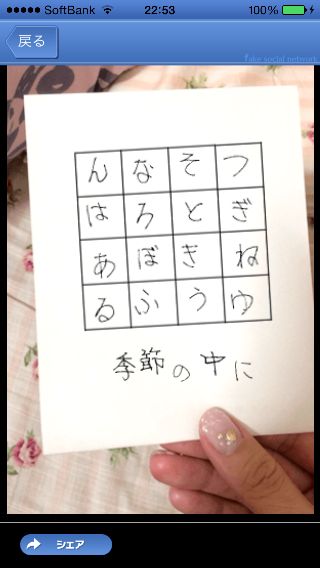 SoftBank 22:53 100%
戻る
fake social network
んなそつ
はろとぎ
あぼきね
るふうゆ
季節の中に
シェア